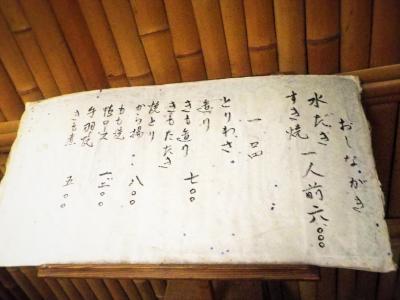 おしながき
水だき 一人前 六、〇〇〇
すき焼
一品
とりわさ
造り
きも造り 七〇〇
きもたたき
焼とり
から揚 八〇〇
もも焼
手羽焼
きも煮 五〇〇